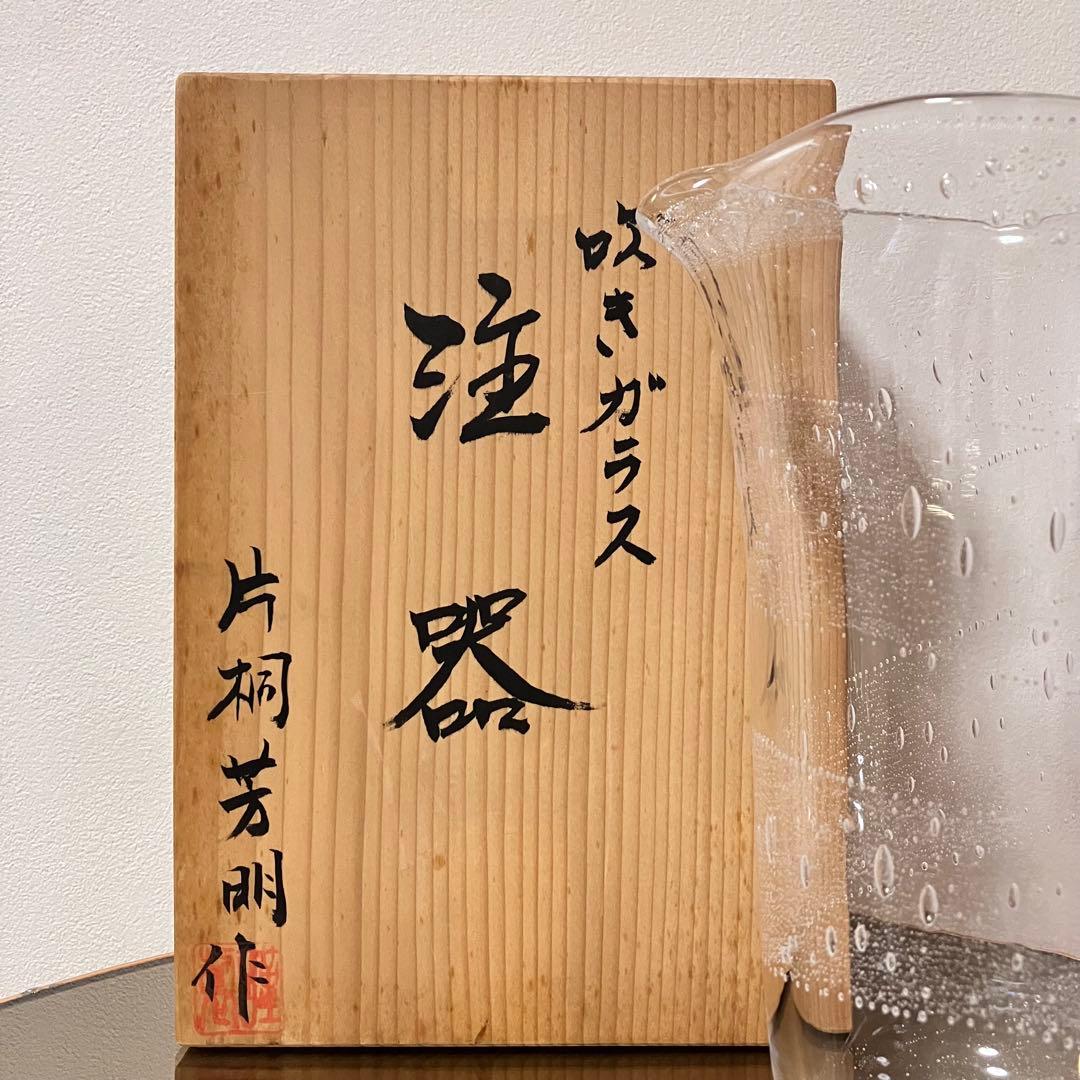 吹きガラス
注器
片桐芳明作